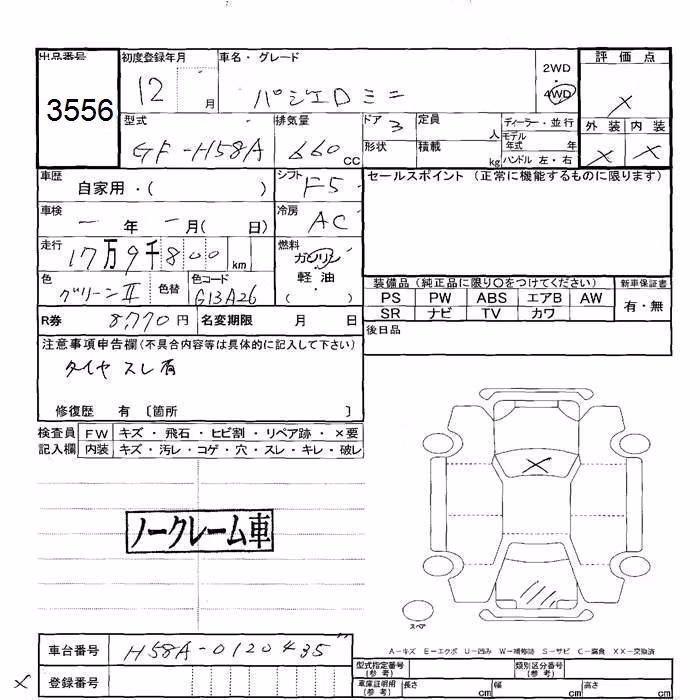 出品番号
3556
初度登録年月
12 月
車名・グレード
パジェロミニ
2WD
4WD
評価点
×
外装 内装
× ×
型式
GF-H58A
排気量
660 cc
ドア 3
形状
定員 人
積載 kg
ディーラー・並行
モデル年式 年
ハンドル 左・右
車歴
自家用・( )
シフト
F5
車検
一年一月( 日)
冷房
AC
走行
17万9千800 km
燃料
ガソリン
軽油
( ・ )
色
グリーンⅡ
色替
色コード
G13A26
R券 8,770円
名変期限 月 日
セールスポイント(正常に機能するものに限ります)
装備品(純正品に限り○をつけてください)
新車保証書
PS PW ABS エアB AW
有・無
SR ナビ TV カワ
後日品
注意事項申告欄(不具合内容等は具体的に記入して下さい)
タイヤスレ有
修復歴 有 〔箇所 〕
検査員 FW キズ・飛石・ヒビ割・リペア跡・×要
記入欄 内装 キズ・汚レ・コゲ・穴・スレ・キレ・破レ
ノークレーム車
×
スペア
A-キズ E-エクボ U-凹み W-補修跡 S-サビ C-腐食 XX-交換済
車台番号 H58A-0120435
× 登録番号
型式指定番号(参考)
類別区分番号(参考)
車庫証明用(参考) 長さ cm 幅 cm 高さ cm